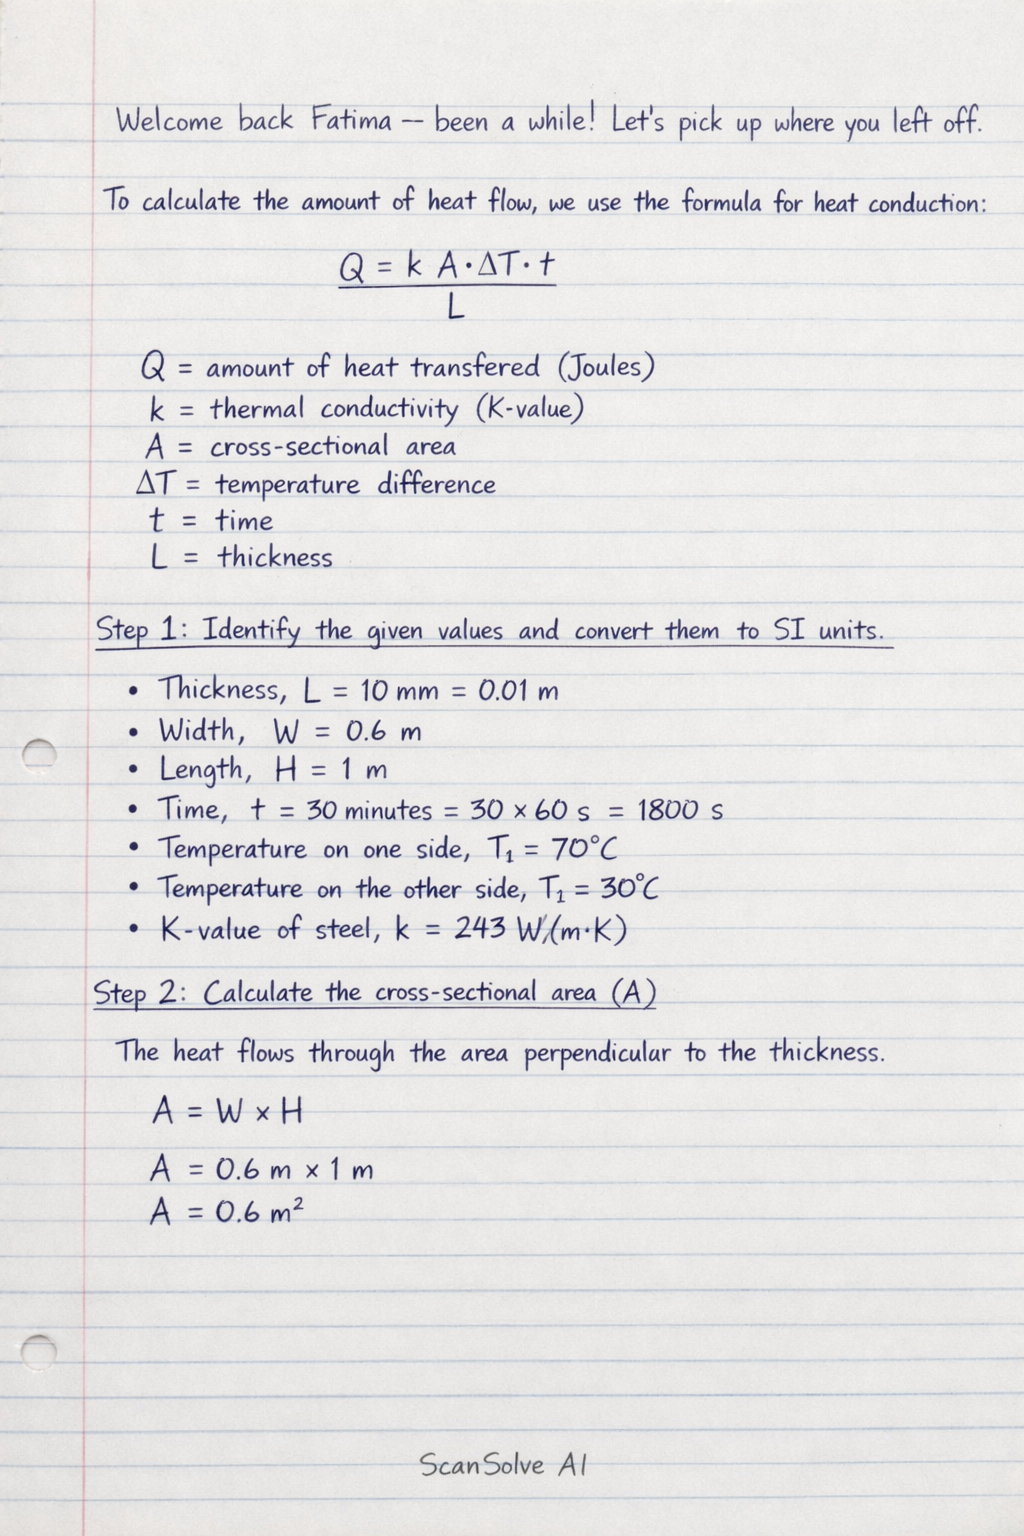 Welcome back Fatima — been a while! Let's pick up where you left off.
To calculate the amount of heat flow, we use the formula for heat conduction:
Q = k A·ΔT·t
L
Q = amount of heat transfered (Joules)
k = thermal conductivity (K-value)
A = cross-sectional area
ΔT = temperature difference
t = time
L = thickness
Step 1: Identify the given values and convert them to SI units.
• Thickness, L = 10 mm = 0.01 m
• Width, W = 0.6 m
• Length, H = 1 m
• Time, t = 30 minutes = 30 × 60 s = 1800 s
• Temperature on one side, T₁ = 70°C
• Temperature on the other side, T₁ = 30°C
• K-value of steel, k = 243 W/(m·K)
Step 2: Calculate the cross-sectional area (A)
The heat flows through the area perpendicular to the thickness.
A = W × H
A = 0.6 m × 1 m
A = 0.6 m²
ScanSolve AI